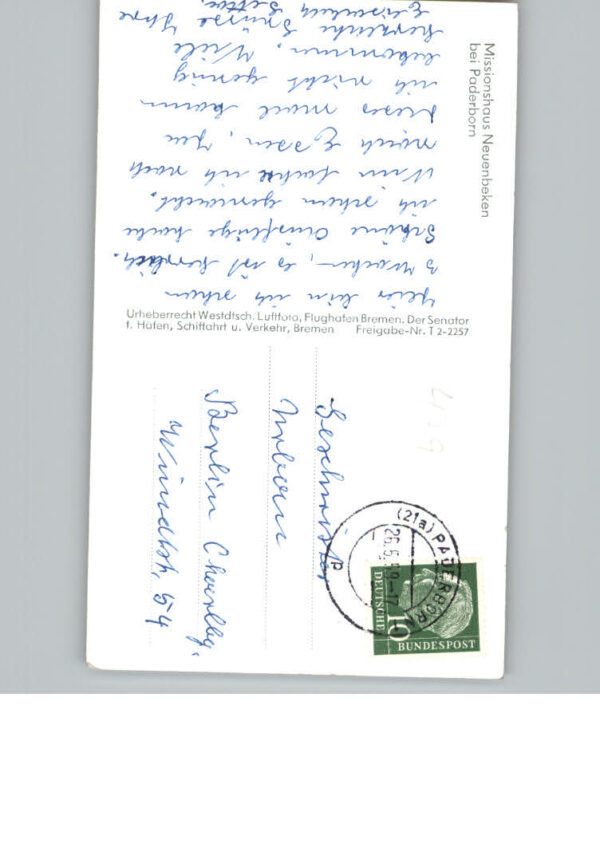 Missionshaus Neuenbeken
bei Paderborn
Hier bin ich schon
3 Wochen, es ist herrlich.
Schöne Ausflüge habe
ich schon gemacht.
Wann fahre ich noch
nach Essen, zu
dieses mal kann
ich nicht genug
bekommen. Viele
herzliche Grüsse Ihre
Urheberrecht Westdtsch. Luftfoto, Flughafen Bremen. Der Senator
f. Häfen, Schiffahrt u. Verkehr, Bremen Freigabe-Nr. T 2-2257
Geschwister
Urban
Berlin Charlbg.
Windtsh. 54
4/39
(21a) PADERBORN
26.5.59.-17
p
DEUTSCHE
BUNDESPOST
10